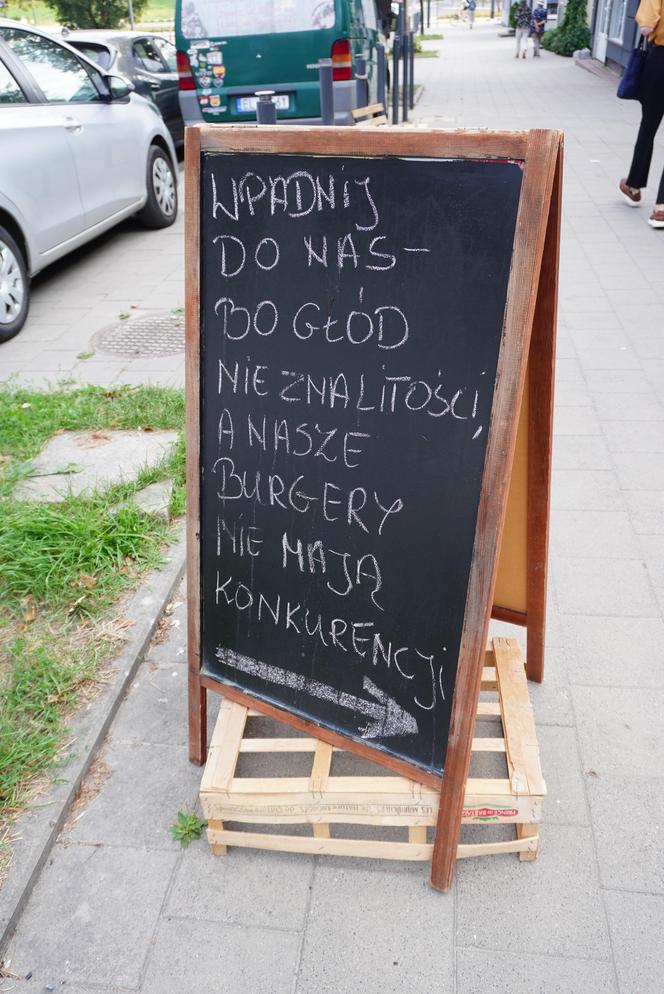 WPADNIJ
DO NAS-
BO GŁÓD
NIE ZNA LITOŚCI,
A NASZE
BURGERY
NIE MAJĄ
KONKURENCJI